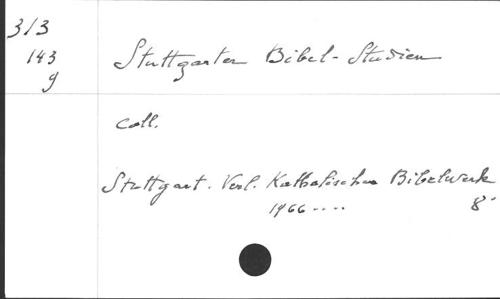 313
143
g
Stuttgarter Bibel-Studien
coll.
Stuttgart. Verl. Katholisches Bibelwerk
1966....
8°